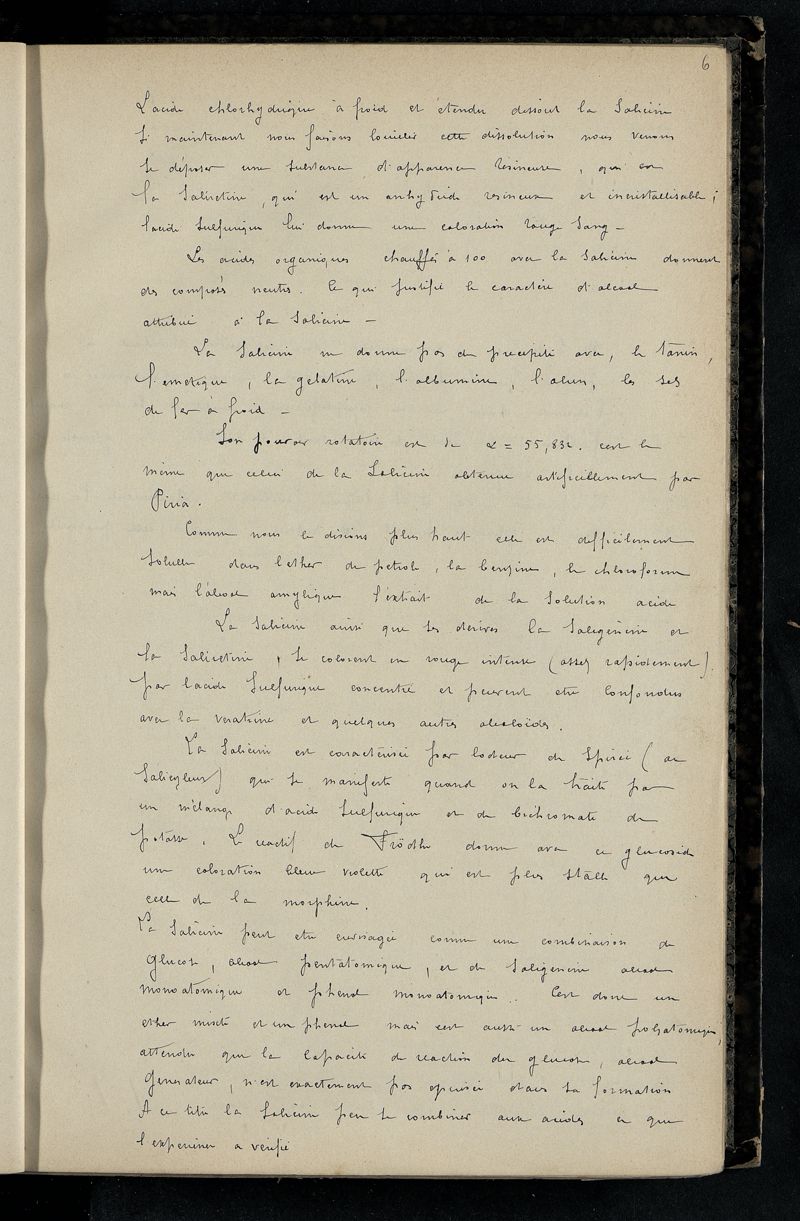 6
L'acide chlorhydrique à froid et etendu dissout la Salicine
Si maintenant nous faisons bouillir cette dissolution nous venons
se déposer une substance d'apparence resineuse, qui est
la Saliretine, qui est un anhydride resineux et incristallisable;
l'acide sulfurique lui donne une coloration rouge sang —
Les acides organiques chauffés à 100 avec la Salicine donnent
des composés neutres. Ce qui justifie le caractère d'alcool
attribué à la Salicine —
La Salicine ne donne pas de precipité avec, le tanin,
l'emetique, la gelatine, l'albumine, l'alun, les sels
de fer à froid —
Son pouvoir rotatoire est de α = 55,832. c'est le
même que celui de la Salicine obtenue artificiellement par
Piria.
Comme nous le disions plus haut elle est difficilement
soluble dans l'ether de petrole, la benzine, le chloroforme
mais l'alcool amylique l'extrait de la solution acide
La Salicine ainsi que ses derives la Saligenine et
la Saliretine, se colorent en rouge intense (assez rapidement)
par l'acide sulfurique concentré et peuvent etre confondus
avec la veratrine et quelques autres alcaloïdes.
La Salicine est caractérisée par l'odeur de Spirée (ac
Salicyleux) qui se manifeste quand on la traite par
un mélange d'acide sulfurique et de bichromate de
potasse. Le reactif de Fröedhe donne avec ce glucoside
une coloration bleue violette qui est plus stable que
celle de la morphine.
La Salicine peut etre envisagée comme une combinaison de
glucose, alcool pentatomique, et de Saligenine alcool
monoatomique et phenol monoatomique. C'est donc un
ether mixte et un phenol mais c'est aussi un alcool polyatomique,
attendu que la capacité de reaction du glucose, alcool
generateur, n'est exactement pas epuisée dans sa formation
A ce titre la Salicine peu se combiner aux acides ce que
l'experience a verifié